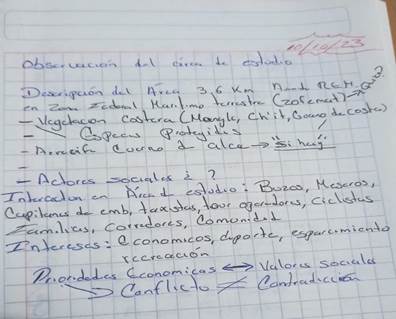 10/10/23
Observación del área de estudio
Descripción del Área 3,6 Km
en Zona Federal Marítimo terrestre (zofemat) → Que?
- Vegetación Costera (Mangle, Chit, Guano de costa)
→ Especies Protegidas
- Arrecife Cuerno d alce → "Si hay"
-
- Actores sociales ¿ ?
Interactúan en Área d estudio: Buzos, Meseros,
Capitanes de emb, taxistas, tour operadores, ciclistas
Familias, Corredores, Comunidad
Intereses: Económicos, deporte, esparcimiento
recreación
Prioridades Económicas ↔ Valores sociales
→ Conflicto ≠ Contradicción